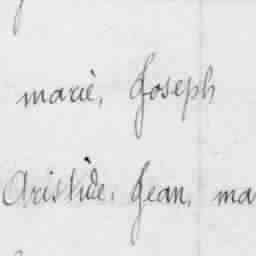 marié, Joseph
Aristide, Jean, ma